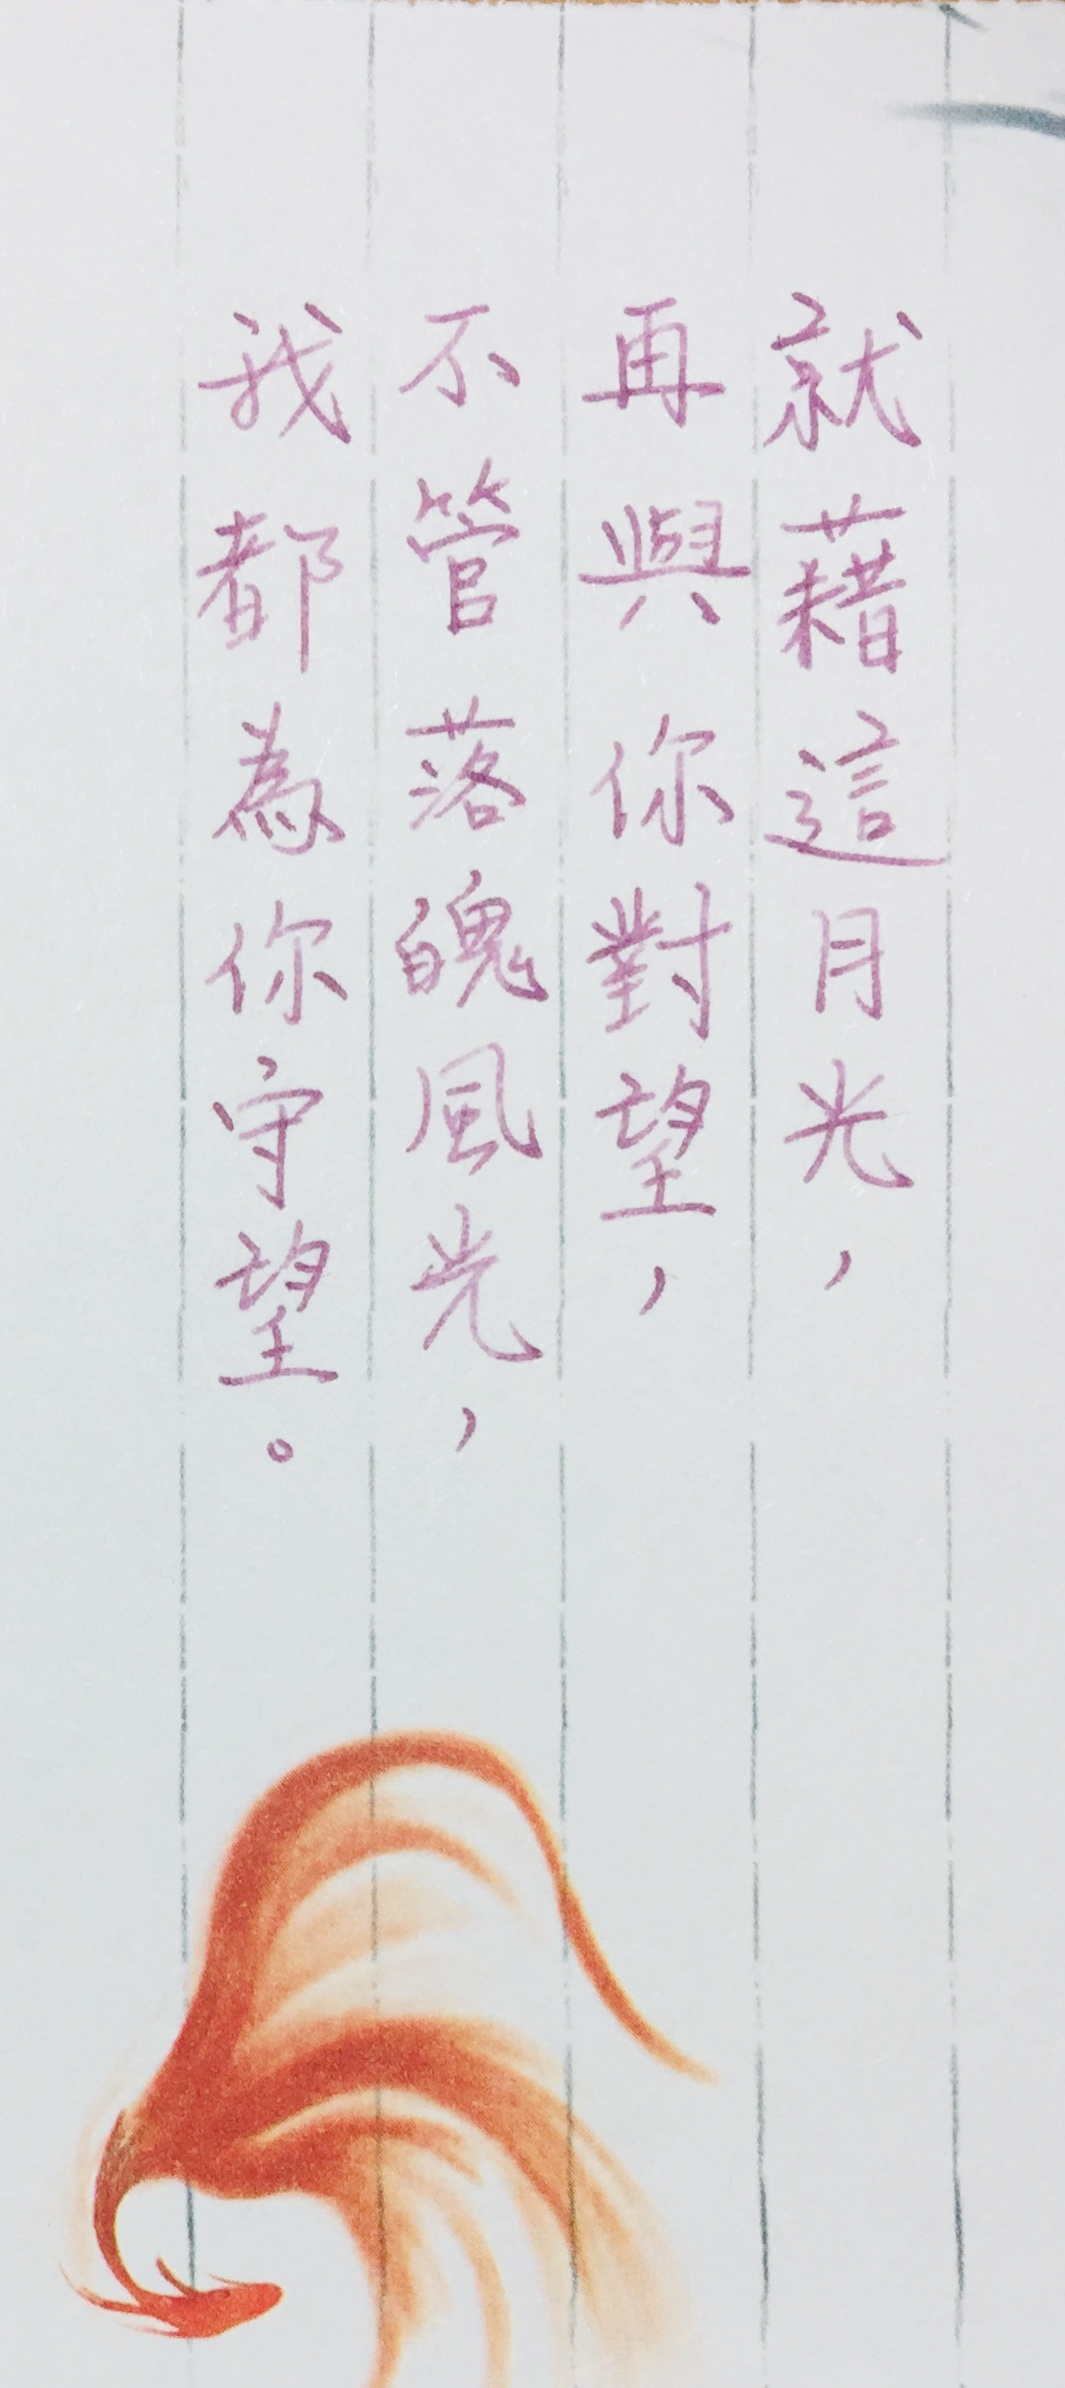 就藉這月光，
再與你對望，
不管落魄風光，
我都為你守望。